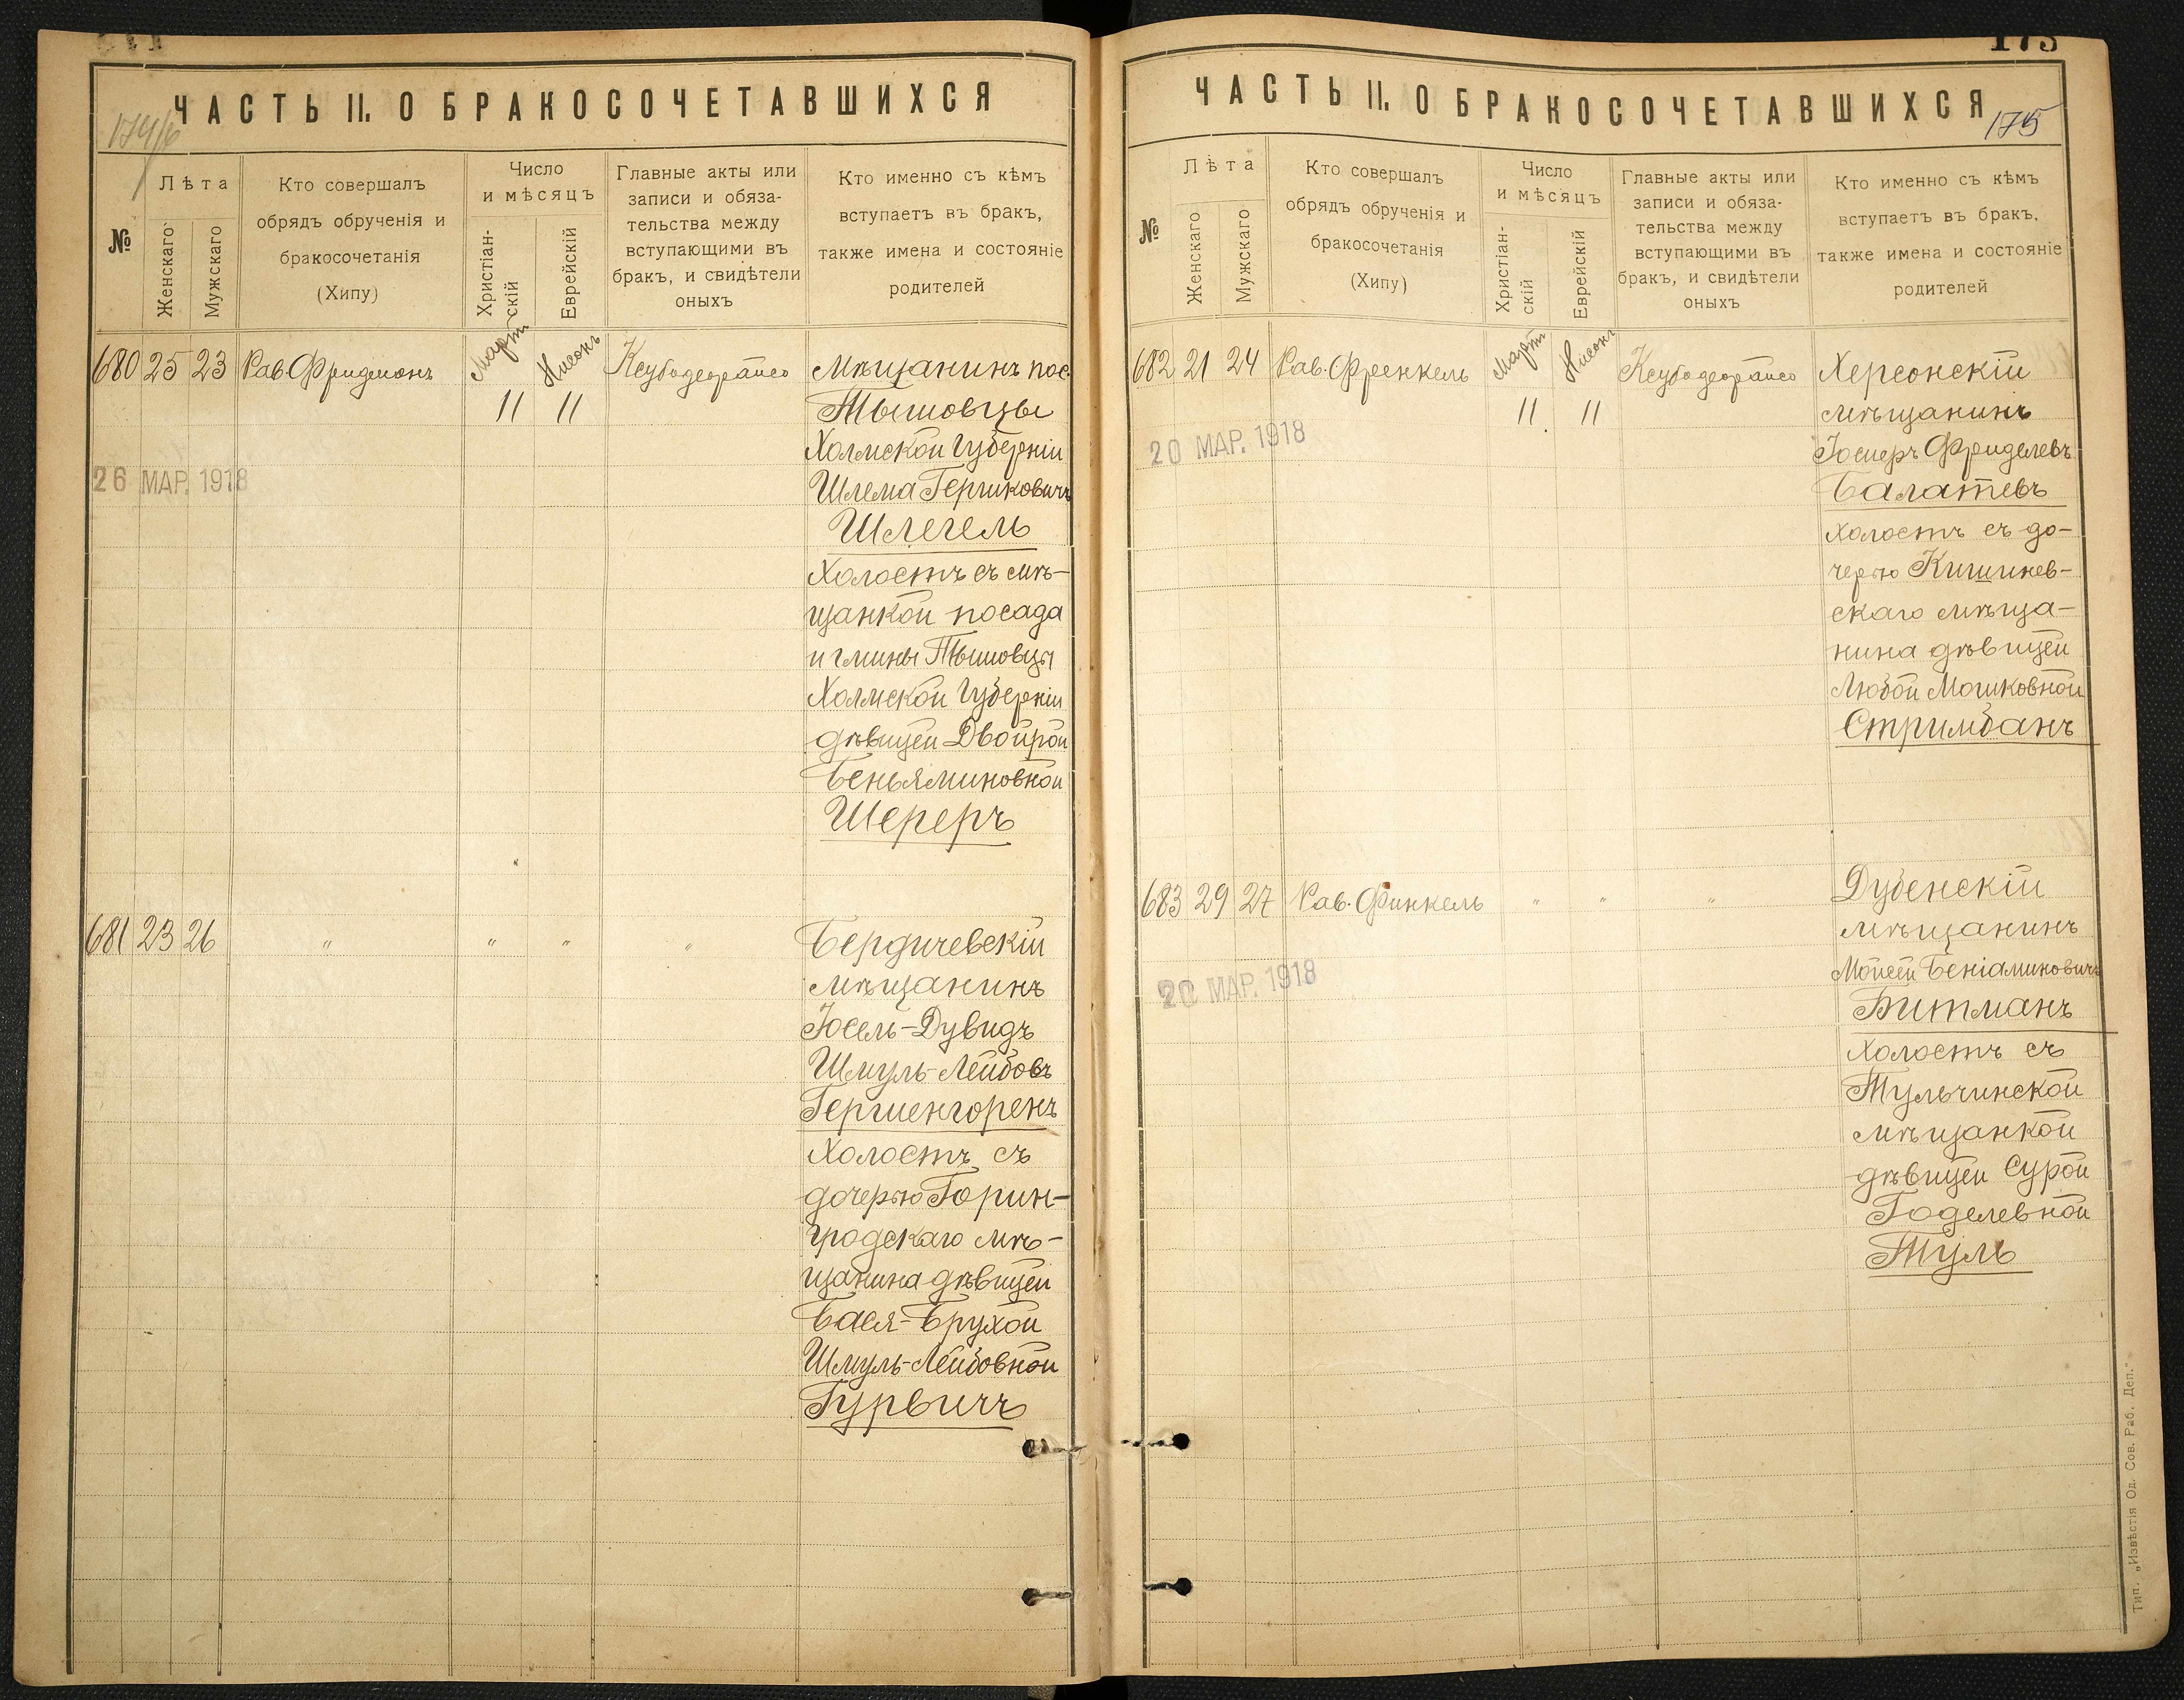 ЧАСТЬ II. О БРАКОСОЧЕТАВШИХСЯ
174/б
№
Лѣта
Женскаго
Мужскаго
Кто совершалъ
обрядъ обрученія и
бракосочетанія
(Хипу)
Число
и мѣсяцъ
Христіан-
скій
Еврейскій
Главные акты или
записи и обяза-
тельства между
вступающими въ
бракъ, и свидѣтели
оныхъ
Кто именно съ кѣмъ
вступаетъ въ бракъ,
также имена и состояніе
родителей
680 25 23 Рав Фридманъ Мартъ Нисонъ
11 11
26 МАР. 1918
Мѣщанинъ пос.
Тышовцы
Холмской Губерніи
Шлема Гершковичъ
Шлегель
Холостъ съ мѣ-
щанкой посада
и гмины Тышовцы
Холмской Губерніи
дѣвицей Двойрой
Беньяминовной
Шереръ
681 23 26 " " " "
Бердичевскій
мѣщанинъ
Іосель-Дувидъ
Шмуль-Лейбовъ
Гершенгоренъ
Холостъ съ
дочерью Горин-
градскаго мѣ-
щанина дѣвицей
Бася-Брухой
Шмуль-Лейбовной
Гурвичъ
ЧАСТЬ II. О БРАКОСОЧЕТАВШИХСЯ
175
175
№
Лѣта
Женскаго
Мужскаго
Кто совершалъ
обрядъ обрученія и
бракосочетанія
(Хипу)
Число
и мѣсяцъ
Христіан-
скій
Еврейскій
Главные акты или
записи и обяза-
тельства между
вступающими въ
бракъ, и свидѣтели
оныхъ
Кто именно съ кѣмъ
вступаетъ въ бракъ,
также имена и состояніе
родителей
682 21 24 Рав. Френкель Мартъ Нисонъ
11 11
20 МАР. 1918
Херсонскій
мѣщанинъ
Фриделевъ
Балатевъ
холостъ съ до-
черью Кишинев-
скаго мѣща-
нина дѣвицей
Любой Мошковной
Стримбанъ
683 29 27 Рав. Финкель " " "
20 МАР. 1918
Дубенскій
мѣщанинъ
Мойсей Беніаминовичъ
Битманъ
холостъ съ
Тульчинской
мѣщанкой
дѣвицей Сурой
Годелевной
Туль
Тип. „Извѣстія Од. Сов. Раб. Деп."